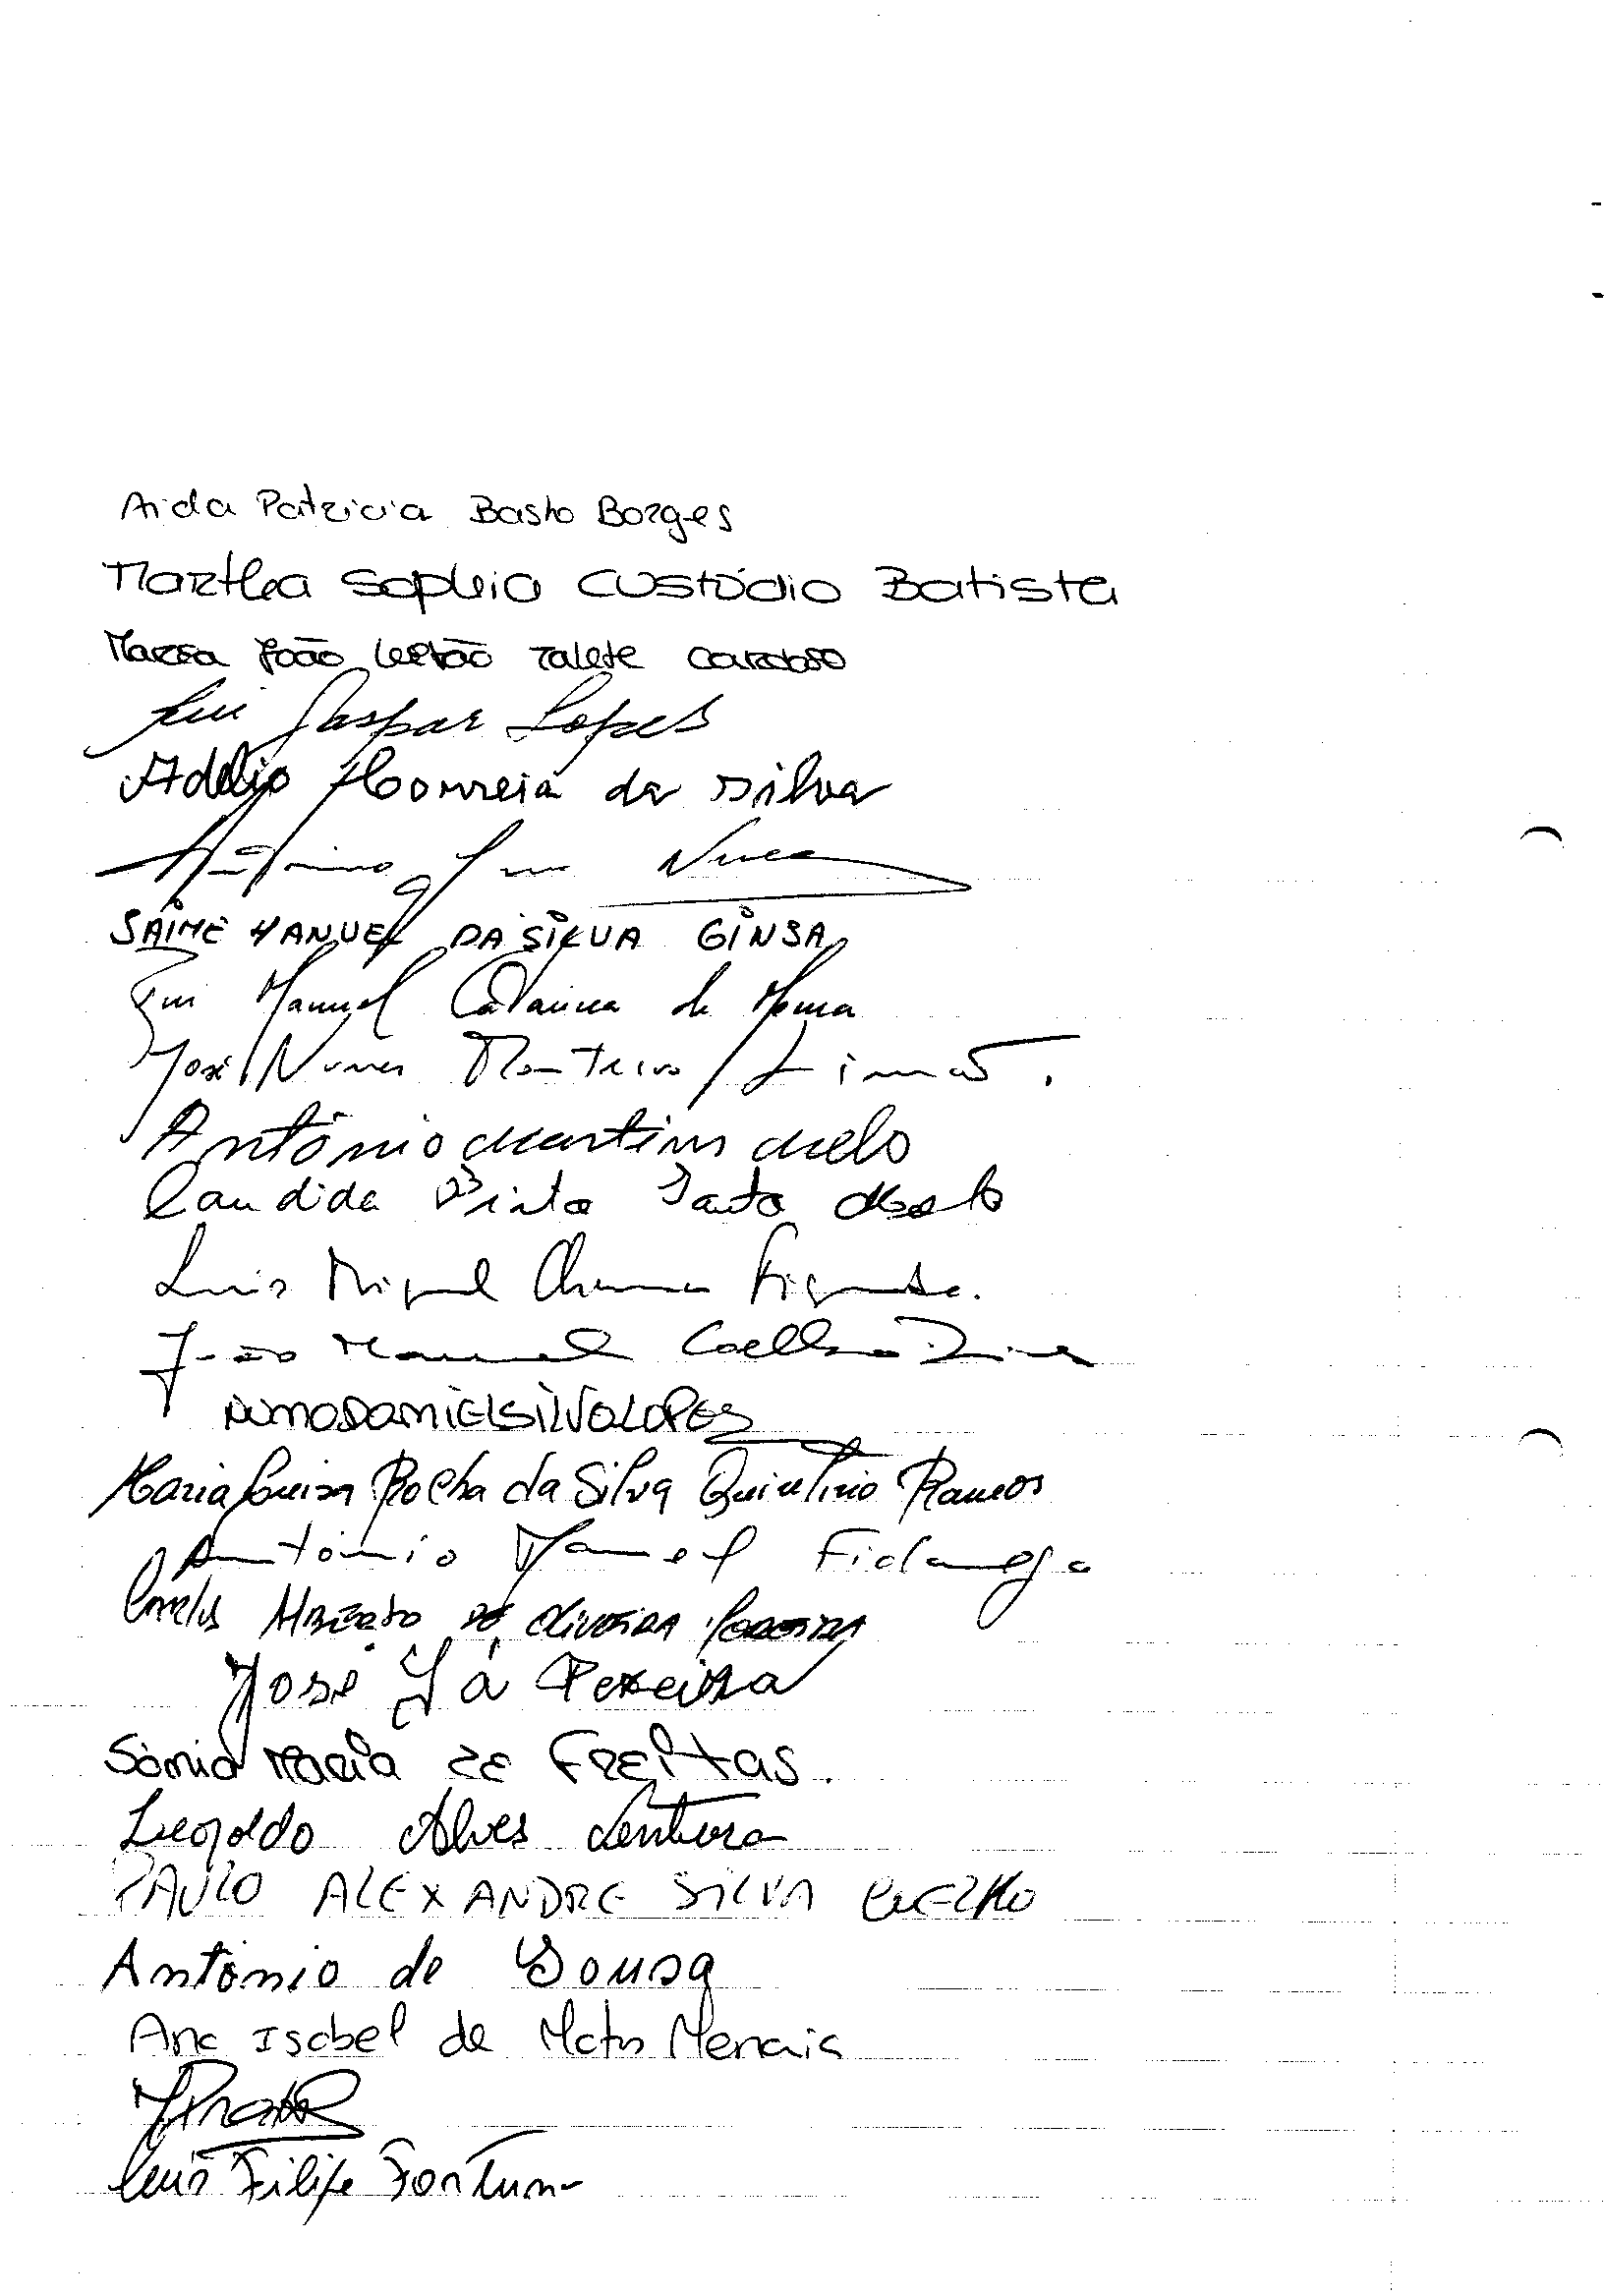 Aida Patricia Basto Borges
Martha Sophia Custódio Batista
Maria João Leitão Talete Cardoso
Rui Gaspar Lopes
Adelio Correia da Silva
Nunes
JAIME MANUEL DA SILVA GINJA
Rui Manuel Catarina de Moura
José Nunes Monteiro Limas.
António Martins Melo
Candida Pinto Santo
Luis Miguel Figueiredo.
João Manuel Coelho
NUNO DANIEL SILVA LOPES
Maria Luisa Rocha da Silva Quintino Ramos
António Manuel Fidalgo
Carlos Alberto de Oliveira Pereira
José Sá Pereira
Sónia Maria de Freitas
Leopoldo Alves Ventura
PAULO ALEXANDRE SILVA COELHO
António de Sousa
Ana Isabel de Matos Menais
Luis Filipe Fortuna